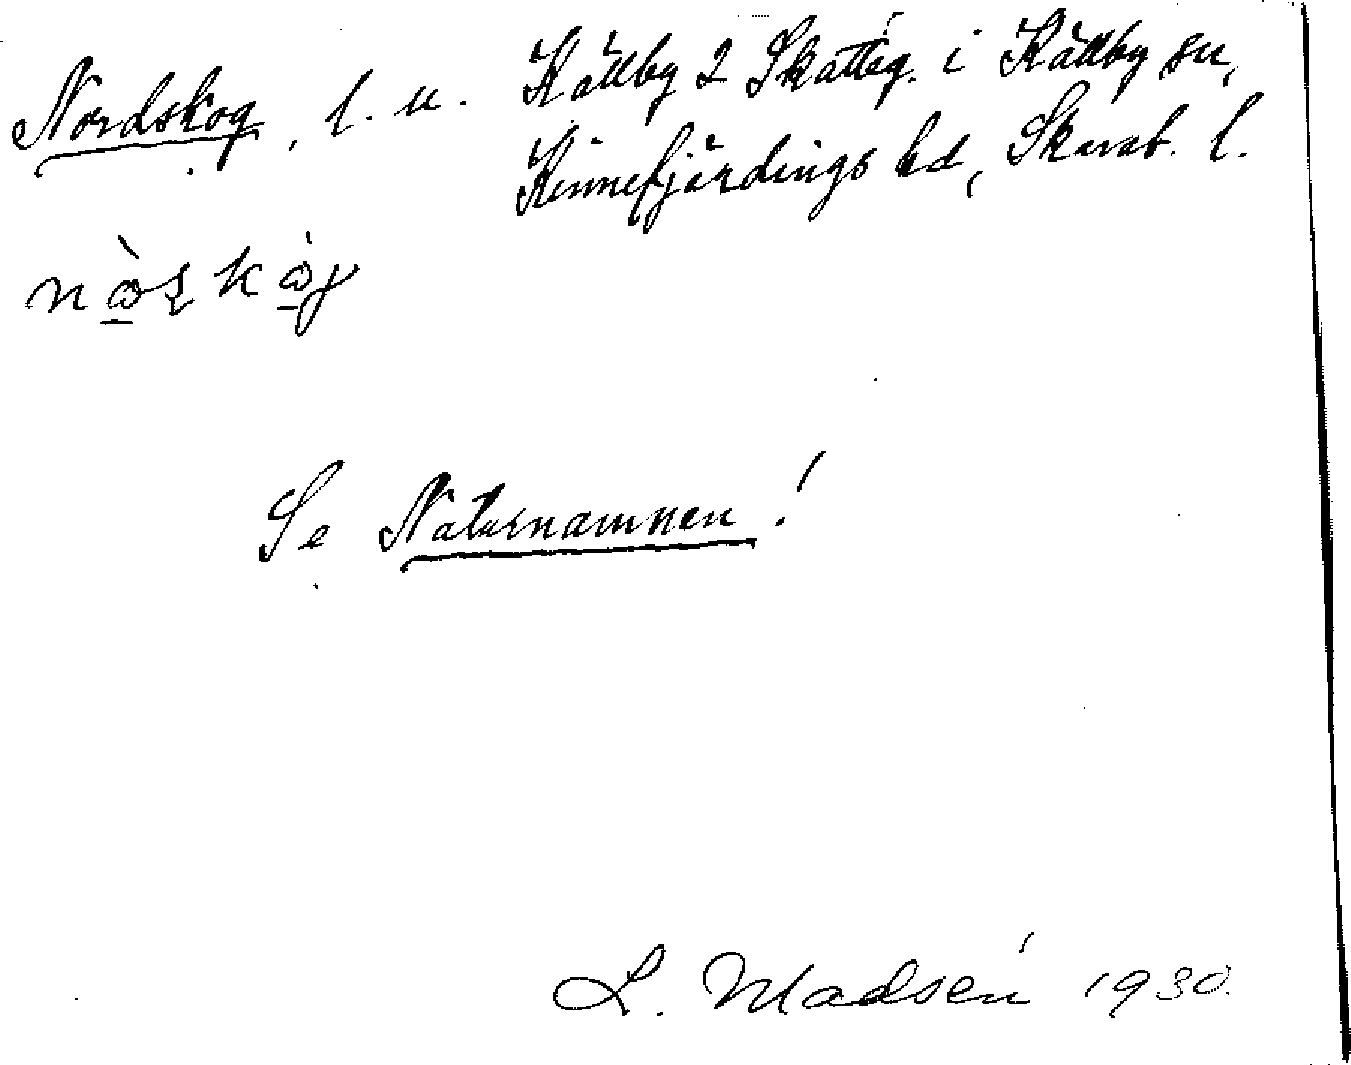 Nordskog, l. u. Källby 2 Skatteg. i Källby sn,
Kinnefjärdings hd, Skarab. l.
Se Naturnamnen!
L. Madsén 1930.